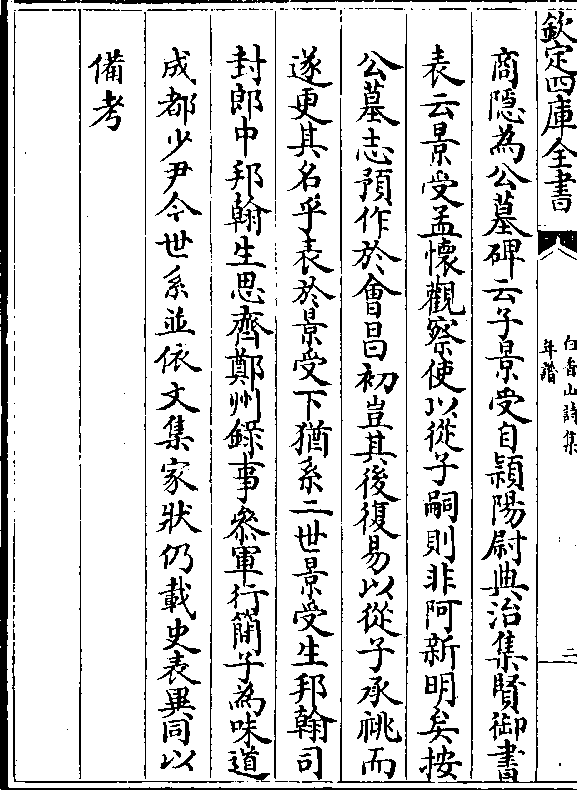 欽定四庫全書
白香山詩集
年譜
二
商隱為公墓碑云子景受自潁陽尉典治集賢御書
表云景受孟懷觀察使以從子嗣則非阿新明矣按
公墓志預作於會昌初豈其後復易以從子承祧而
遂更其名乎表於景受下猶系二世景受生邦翰司
封郎中邦翰生思齊鄭州錄事參軍行簡子為味道
成都少尹今世系並依文集家狀仍載史表異同以
備考